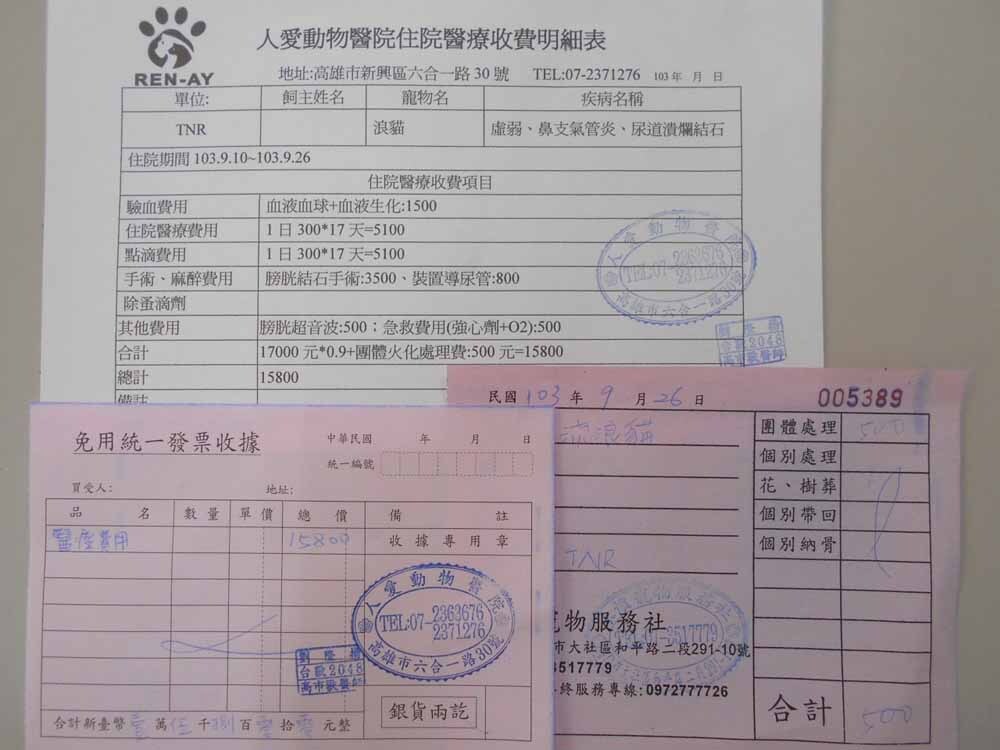 REN-AY
人愛動物醫院住院醫療收費明細表
地址:高雄市新興區六合一路 30 號 TEL:07-2371276 103 年 月 日
單位: 飼主姓名 寵物名 疾病名稱
TNR 浪貓 虛弱、鼻支氣管炎、尿道潰爛結石
住院期間 103.9.10~103.9.26
住院醫療收費項目
驗血費用 血液血球+血液生化:1500
住院醫療費用 1 日 300*17 天=5100
點滴費用 1 日 300*17 天=5100
手術、麻醉費用 膀胱結石手術:3500、裝置導尿管:800
除蚤滴劑
其他費用 膀胱超音波:500；急救費用(強心劑+O2):500
合計 17000 元*0.9+團體火化處理費:500 元=15800
總計 15800
備註
人愛動物醫院
TEL:07-2363676
2371276
高雄市六合一路
2048
民國 103 年 9 月 26 日 005389
流浪貓
TNR
團體處理 500
個別處理
花、樹葬
個別帶回
個別納骨
合計 500
物服務社
市大社區和平路二段291-10號
3517779
終服務專線:0972777726
免用統一發票收據
中華民國 年 月 日
統一編號
買受人: 地址:
品名 數量 單價 總價 備註
醫療費用 15800 收據專用章
人愛動物醫院
TEL:07-2363676
2371276
高雄市六合一路30號
台獸2048
高市獸醫師
合計新臺幣壹萬伍千捌百零拾零元整
銀貨兩訖